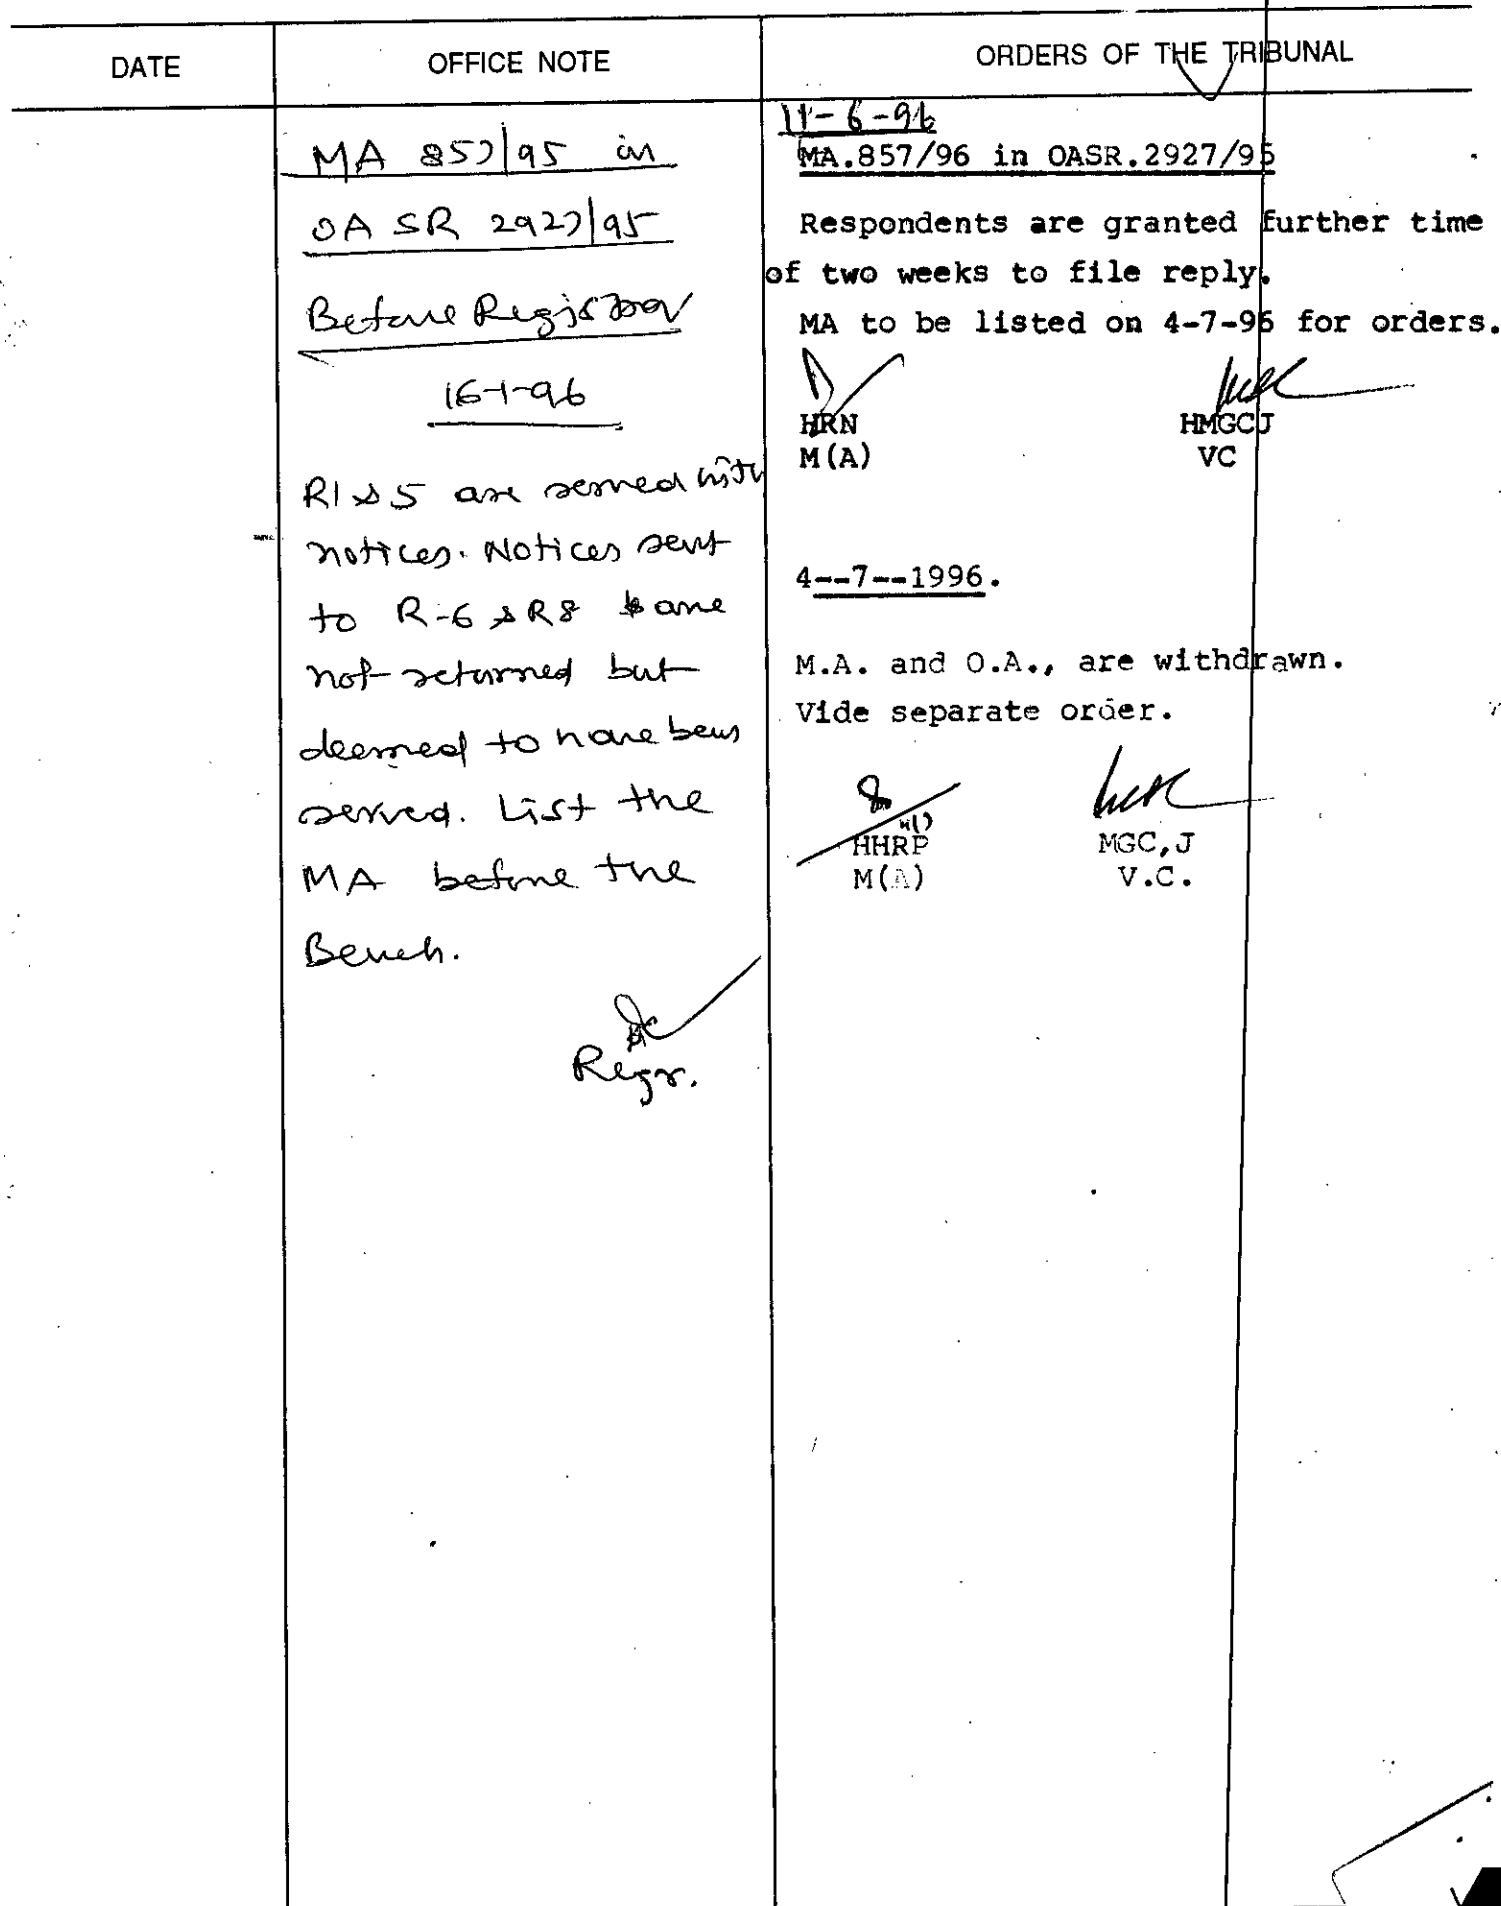 DATE
OFFICE NOTE
ORDERS OF THE TRIBUNAL
MA 857/95 in
OA SR 2927/95
Before Registrar
16-1-96
R1 & 5 are served with
notices. Notices sent
to R-6 & R8 are
not returned but
deemed to have been
served. List the
MA before the
Bench.
Regr.
11-6-96
MA.857/96 in OASR.2927/95
Respondents are granted further time
of two weeks to file reply.
MA to be listed on 4-7-96 for orders.
HRN HMGCJ
M(A) VC
4--7--1996.
M.A. and O.A., are withdrawn.
Vide separate order.
HHRP MGC,J
M(A) V.C.